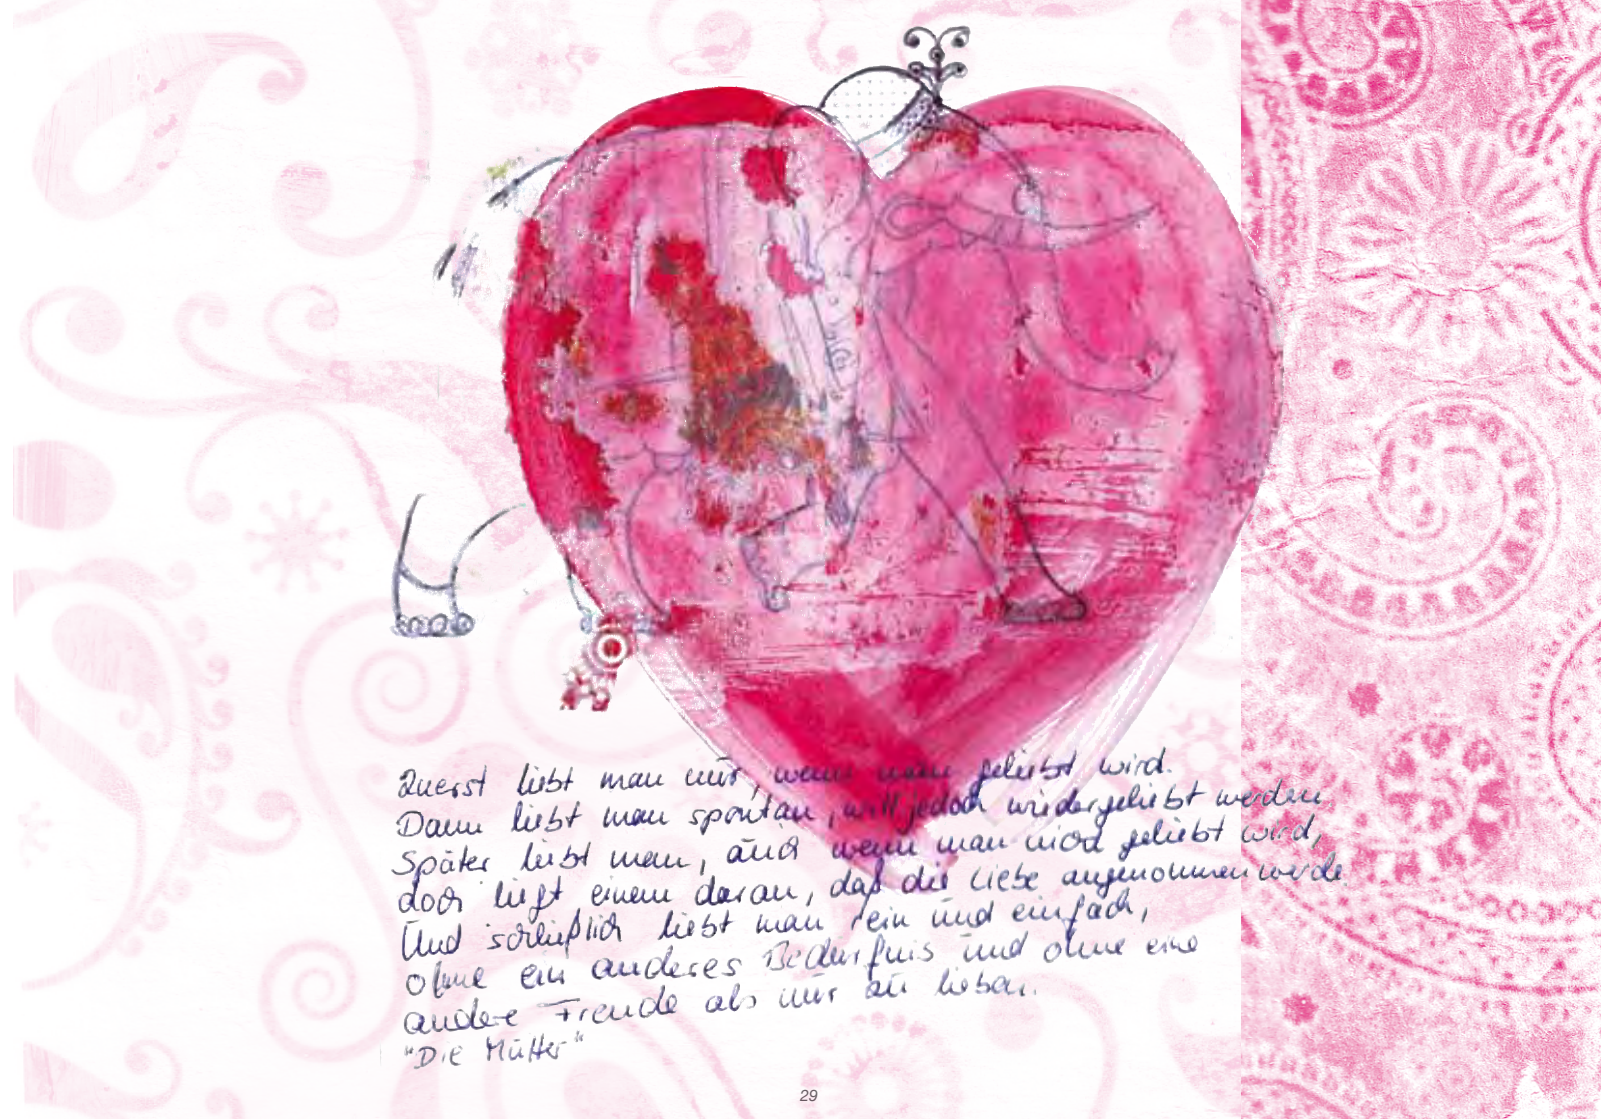 Zuerst liebt man nur, wenn man geliebt wird.
Dann liebt man spontan, will jedoch wiedergeliebt werden
Später liebt man, auch wenn man nicht geliebt wird,
doch liegt einem daran, daß die Liebe angenommen werde.
Und schließlich liebt man rein und einfach,
ohne ein anderes Bedürfnis und ohne eine
andere Freude als nur zu lieben.
"Die Mutter"
29